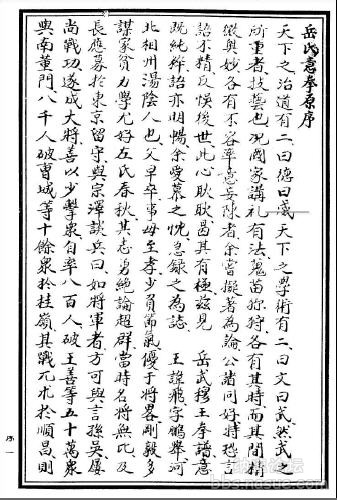 岳氏意拳原序
天下之治道有二曰德曰威天下之學術有二曰文曰武然武之
所重者技藝也况國家講礼有法蒐苗狝狩各有其時而其間精
微奥妙各有不容率意妄陳者余嘗擬著為論公諸同好特恐言
語不精反悮後世此心耿耿曷其有極兹見 岳武穆王拳譜意
既純粹語亦明暢余愛慕之忱急錄之為誌 王諱飛字鵬舉河
北相州湯陰人也父早卒事母至孝少負節氣優于將畧剛毅多
謀家貧力學尤好左氏春秋其志勇絶論超群當時名將無比及
長應募於東京留守與宗澤談兵曰如將軍者方可與言孫吳屢
尚戰功遂成大將善以少擊衆自率八百人破王善等五十萬衆
與南董門八千人破曹城等十餘衆於桂嶺其戰兀朮於順昌則
序一